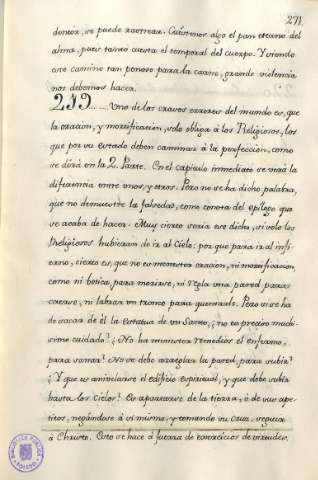 271
dencia, se puede rastrear. Cuéstenos algo el pan eterno del
alma, pues tanto cuesta el temporal del cuerpo. Y siendo
este camino tan penoso para la carne, grande violencia
nos debemos hacer.
219.... Uno de los crasos errores del mundo es, que
la oracion, y mortificacion, solo obliga à los Religiosos, los
que por su estado deben caminar à la perfeccion, como
se dirá en la 2. Parte. En el capitulo immediato se verá la
diferiencia entre unos y otros. Pero no se ha dicho palabra,
que no demuestre la falsedad, como consta del epilogo que
se acaba de hacer. Muy cierto seria ese dicho, si solo los
Religiosos hubieran de ir al Cielo: por que para ir al infi-
erno, cierto es, que no es menester oracion, ni mortificacion,
como ni botica, para morirse, ni regla una pared para
caerse, ni labrar un tronco para quemarle. Pero si se ha
de sacar de él la Estatua de un Santo, ¿no es preciso muchi-
simo cuidado? ¿No ha menester remedios el enfermo,
para sanar? No se debe arreglar la pared, para subir?
¿Y que es anivelarse el edificio espiritual, y que debe subir
hasta los Cielos? Es apartarse de la tierra, ó de sus ape-
titos, negandose à si mismo, y tomando su cruz, seguir
à Christo. Esto se hace à fuerza de exercicios de virtudes.
BIBLIOTECA PUBLICA
TOLEDO